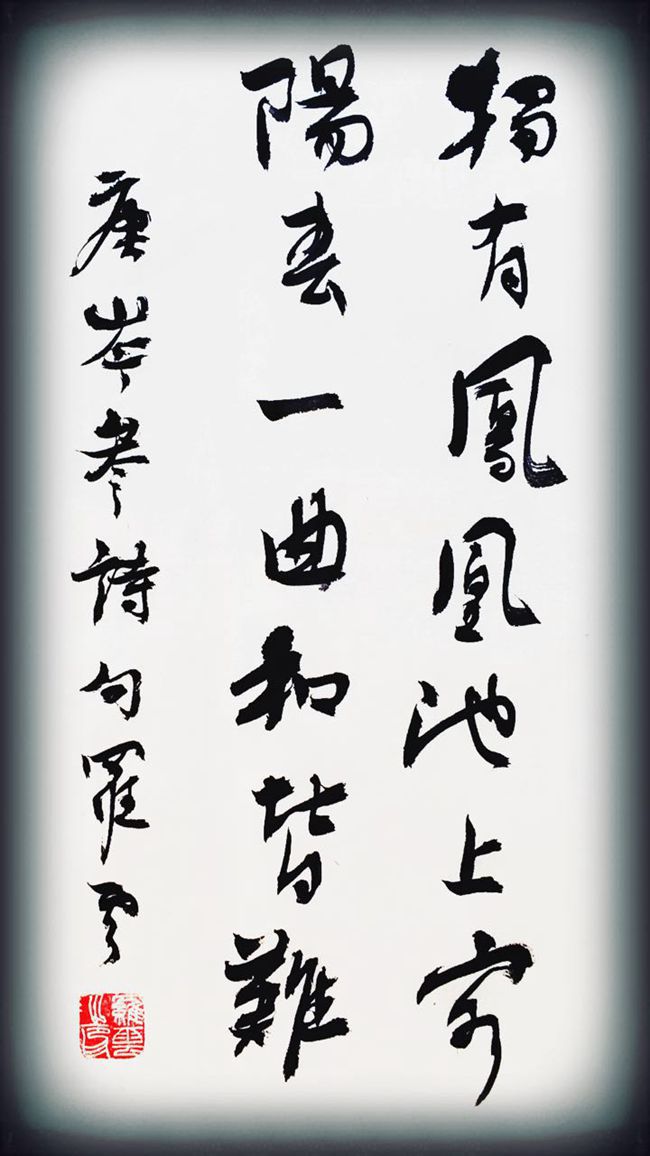 獨有鳳凰池上客
陽春一曲和皆難
唐岑參詩句羅雲
羅雲之印